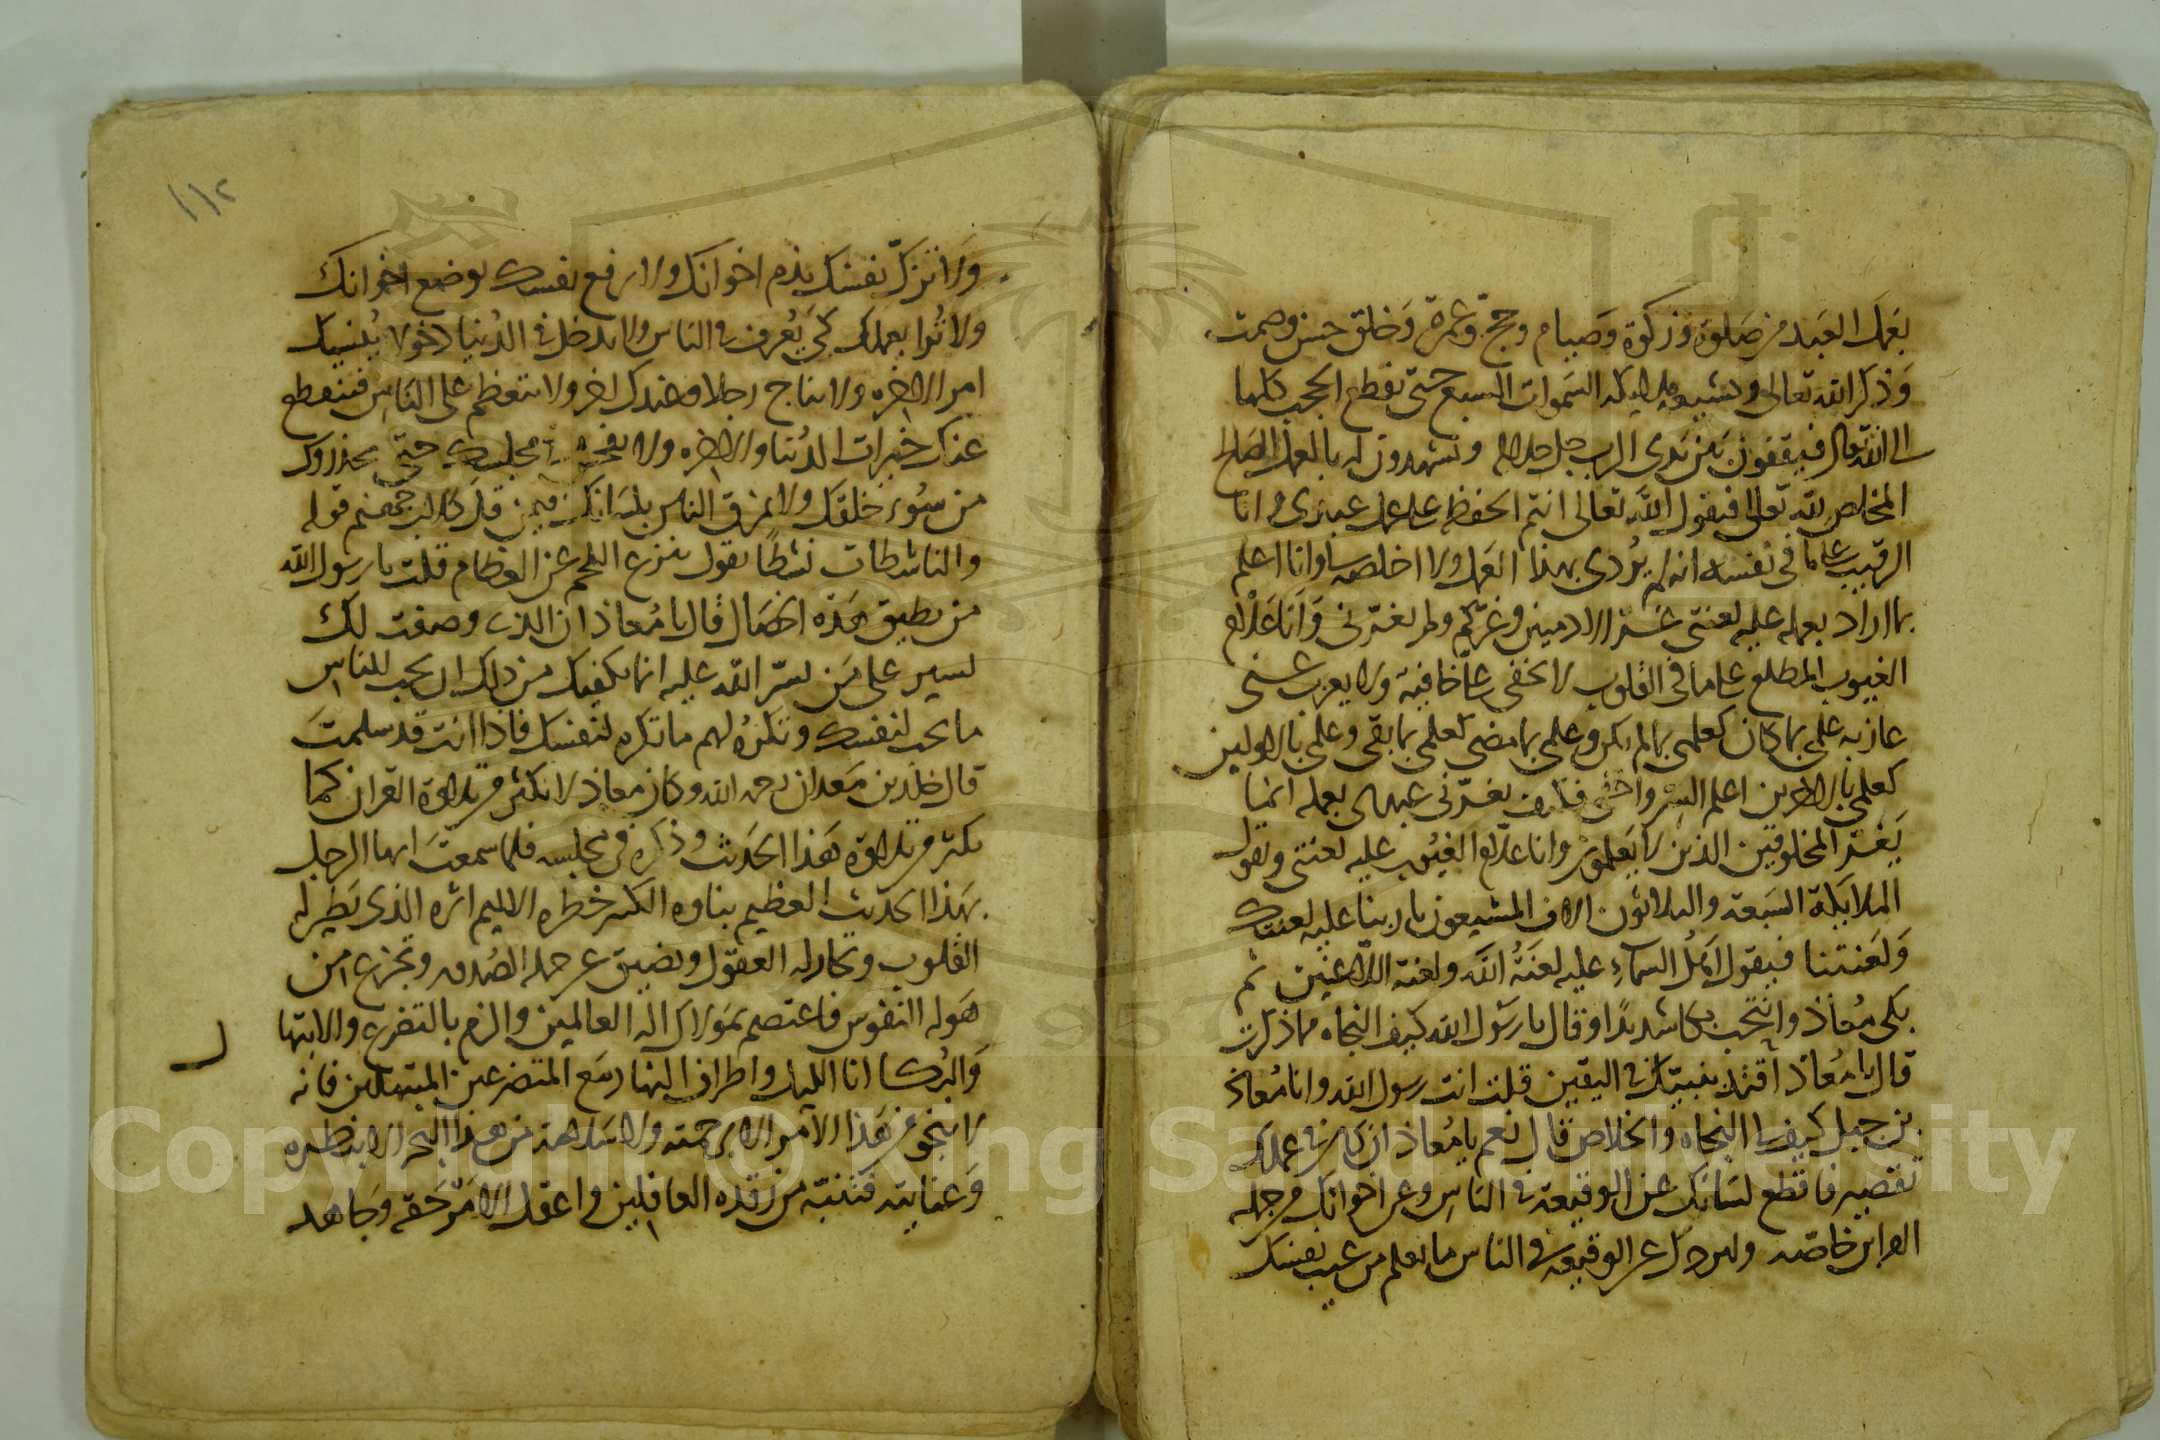 بعمل العبد من صلوة وزكوة وصيام وحج وعمرة وخلق حسن وصمت
وذكر الله تعالى وتشيعه ملايكه السموات السبع حتى يقطع الحجب كلها
الى الله تعالى فيقفون بين يدي الرب جل جلاله وتشهدون له بالعمل الصالح
المخلص لله تعالى فيقول الله تعالى انتم الحفظه على عمل عبدي وانا
الرقيب على ما في نفسه انه لم يردى بهذا العمل ولا اخلصه لى وانا اعلم
بما اراد بعمله عليه لعنتى غر الادميين وغركم ولم يغرنى وانا علام
الغيوب المطلع على ما في القلوب لا تخفى على خافية ولا يعزب عنى
عازبه علمى بما كان كعلمى بما لم يكن وعلمى بما مضى كعلمى بما بقى وعلمى بالاولين
كعلمى بالاخرين اعلم السر واخفى فكيف يغرنى عبدى بعمله انما
يغر المخلوقين الذين لا يعلمون وانا علام الغيوب عليه لعنتى وتقول
الملايكة السبعة والثلاثون الاف المشيعون يا ربنا عليه لعنتك
ولعنتنا فيقول اهل السماء عليه لعنة الله ولعنة اللاعنين ثم
بكى معاذ وانتحب بكا شديدا وقال يا رسول الله كيف النجاه مما ذكرت
قال يا معاذ اقتد بنبيك في اليقين قلت انت رسول الله وانا معاذ
بن جبل كيف لى النجاه والخلاص قال نعم يا معاذ ان كان في عملك
تقصير فاقطع لسانك عن الوقيعة في الناس وعن اخوانك من حمله
القران خاصه وليردك عن الوقيعه في الناس ما تعلم من عيب نفسك
١١٢
ولا تزك نفسك بذم اخوانك ولا ترفع نفسك بوضع اخوانك
ولا ترا بعملك كي يعرف في الناس ولا تدخل في الدنيا دخولا ينسيك
امر الاخره ولا تناج رجلا وعندك اخر ولا تتعظم على الناس فتنقطع
عنك خيرات الدنيا والاخره ولا تفحش في مجلسك حتى يحذروك
من سوء خلقك ولا تمزق الناس بلسانك فيمزقك كلاب جهنم قوله
والناشطات نشطا يقول ينزع اللحم عن العظام قلت يا رسول الله
من يطيق هذه الخصال قال يا معاذ ان الذى وصفت لك
ليسير على من يسر الله عليه انما يكفيك من ذلك ان تحب للناس
ما تحب لنفسك وتكره لهم ما تكره لنفسك فاذا انت قد سلمت
قال خلد بن معدان رحمه الله وكان معاذ لا يكثر من تلاوة القران كما
يكثر من تلاوة هذا الحديث وذكره في مجلسه فلما سمعت ايها الرجل
بهذا الحديث العظيم نباوه الكبير خطره الاليم اثره الذى يطير له
القلوب وتحار له العقول وتضيق عن حمله الصدور وتجزع من
هوله النفوس فاعتصم بمولاك اله العالمين والزم بالتضرع والابتها
ل
والبكا انا الليل واطراف النهار مع المتضرعين المبتهلين فانه
لا ينجو من هذا الامر الا برحمته ولا سلامة من هذا البحر الا بنظره
وعنايته فتنبه من رقدة الغافلين واعقل الامر حقه وجاهد